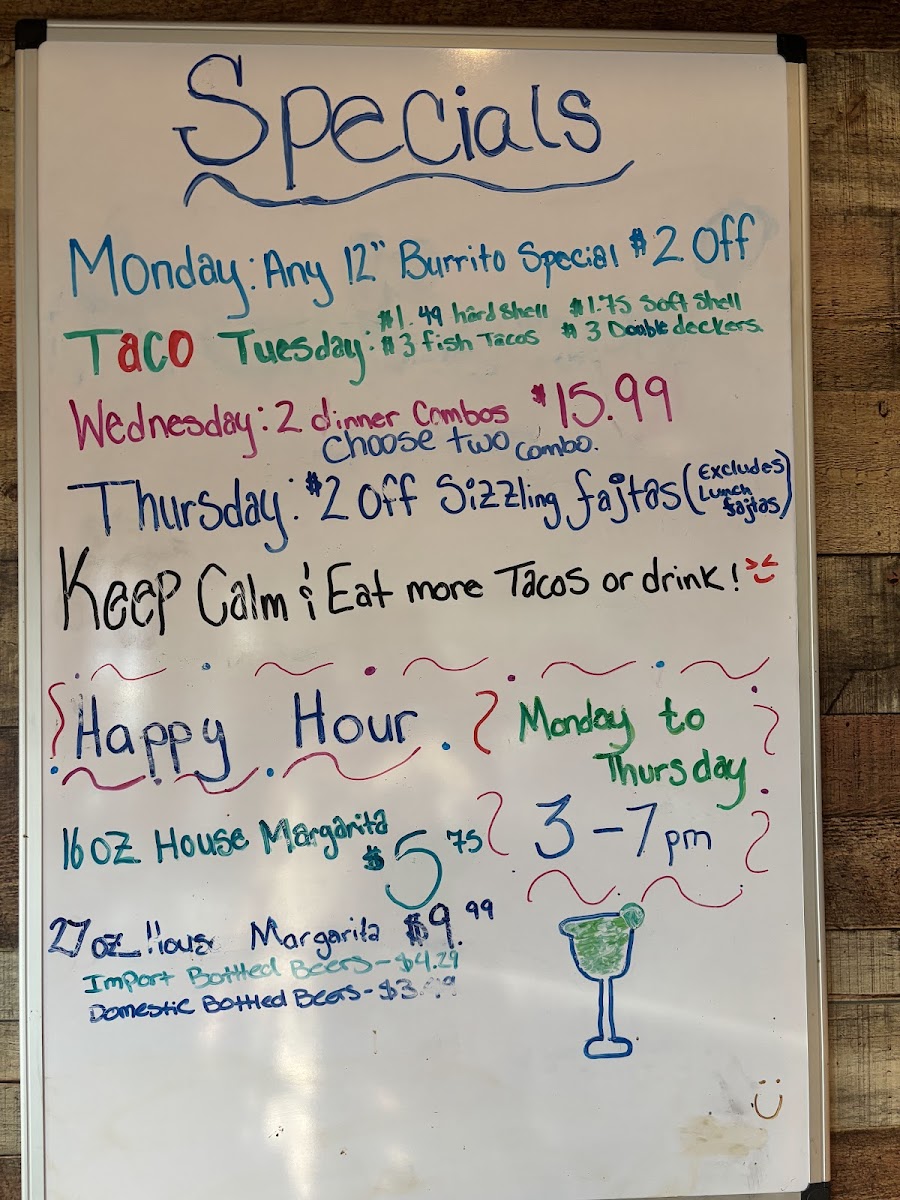 Specials
Monday: Any 12" Burrito Special $2 Off
$1.49 hard shell $1.75 Soft Shell
Taco Tuesday: $3 fish Tacos $3 Double deckers.
Wednesday: 2 dinner Combos $15.99
Choose two combo.
Thursday: $2 Off Sizzling fajtas (Excludes Lunch fajtas)
Keep Calm & Eat more Tacos or drink!
Happy Hour
Monday to
Thursday
3-7pm
16 oz House Margarita
$5.75
27 oz House Margarita $9.99
Import Bottled Beers - $4.29
Domestic Bottled Beers -